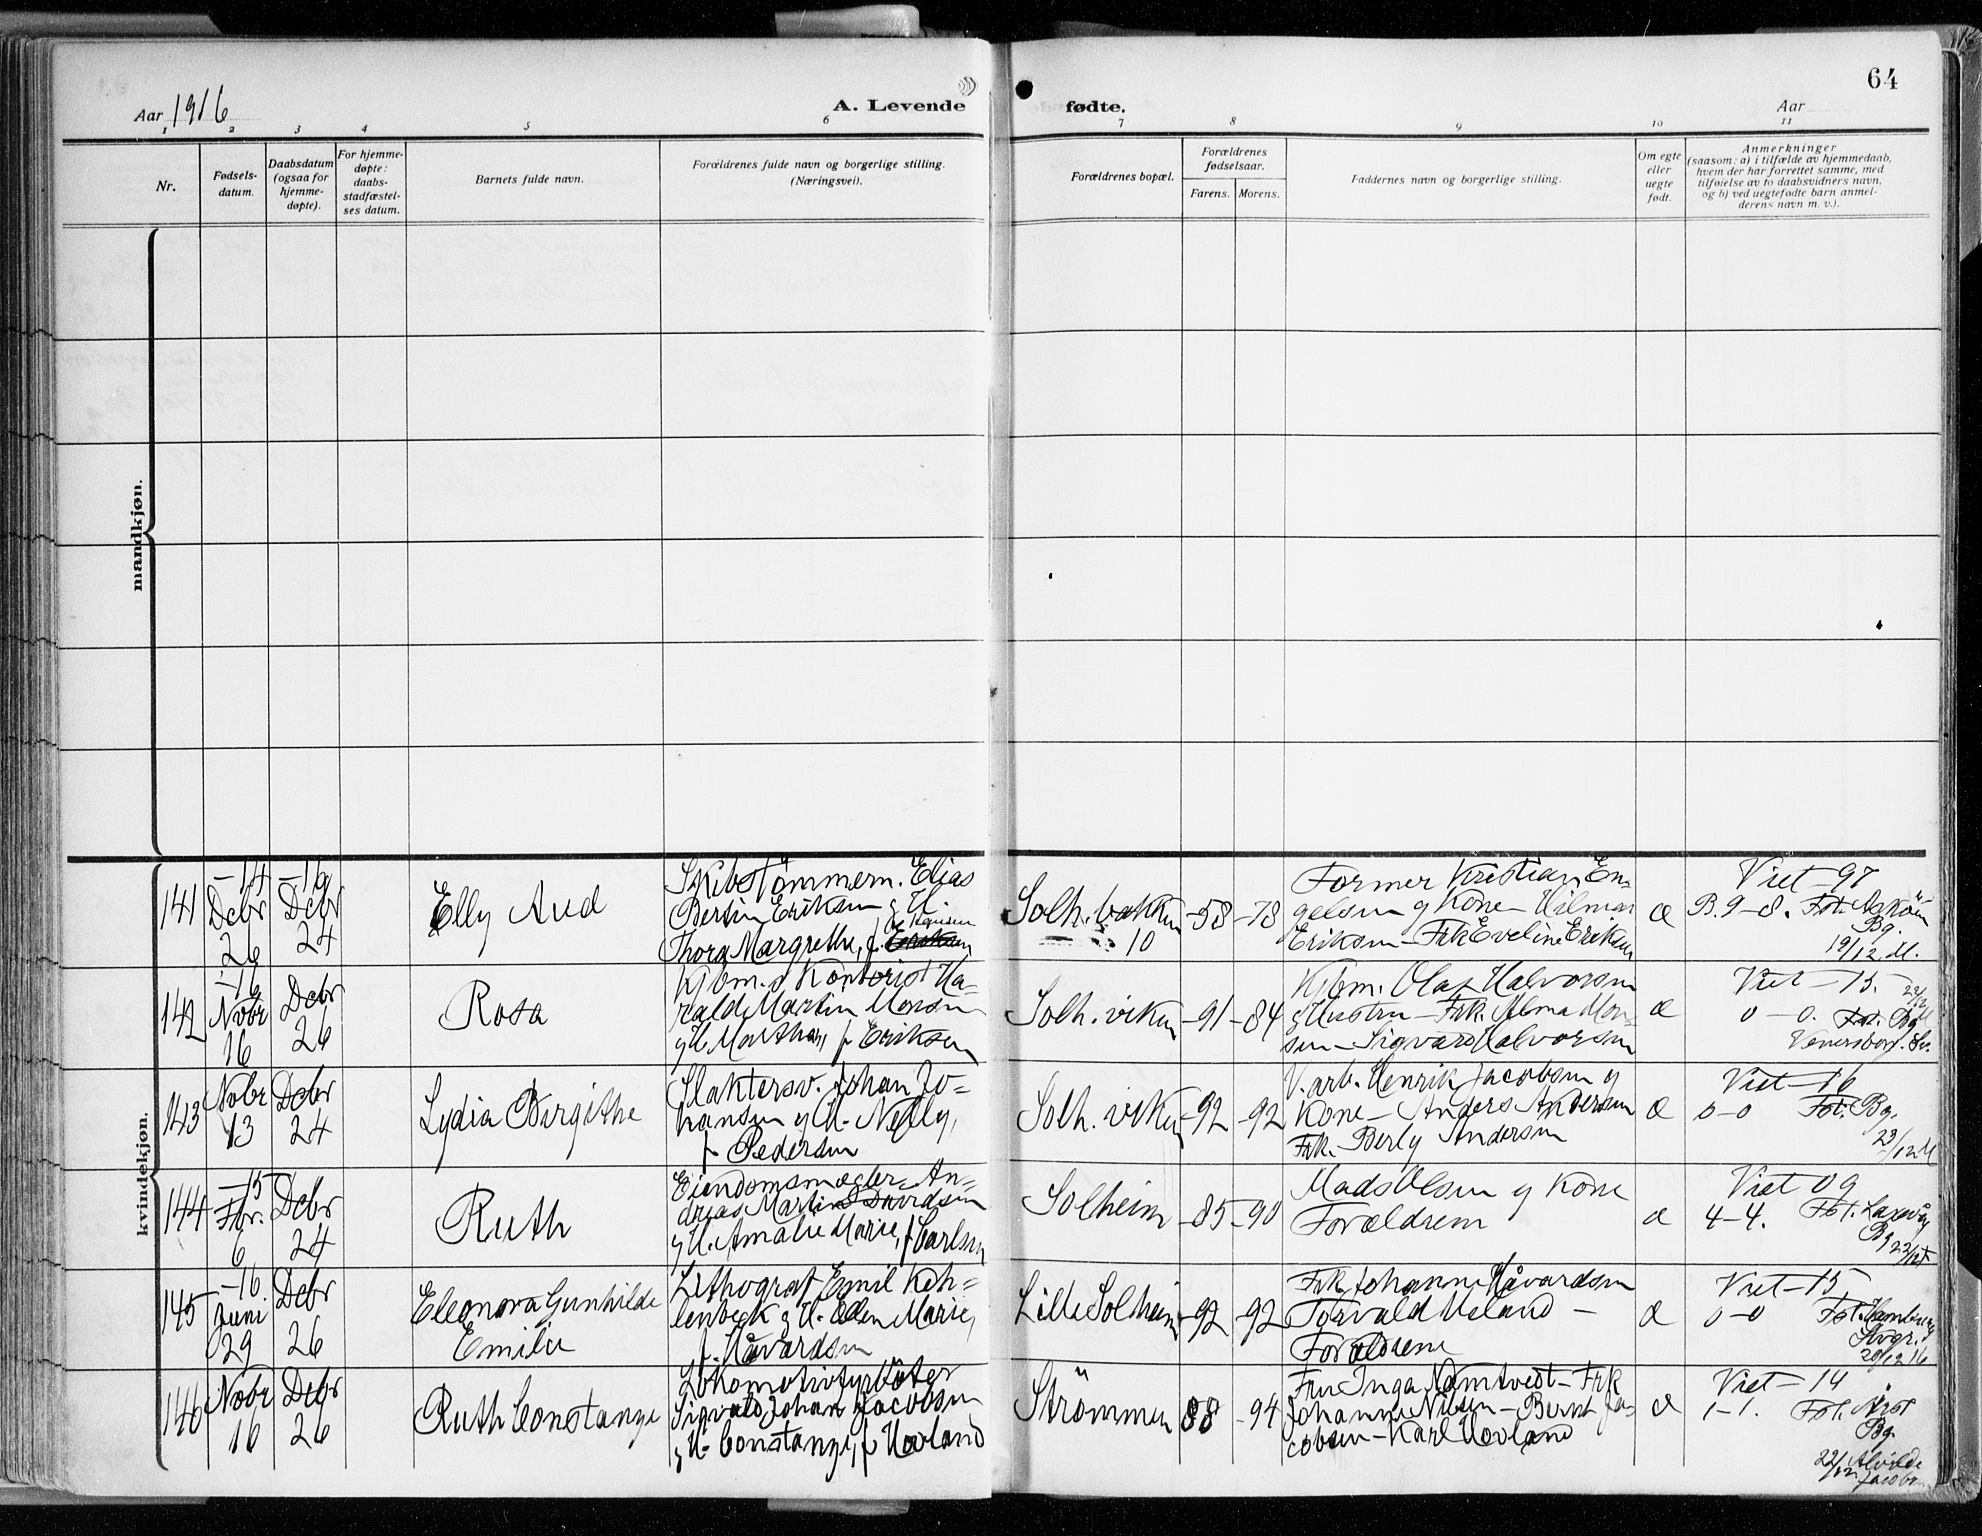 Aar 1916
A. Levende
fødte.
Aar
64
1 2 3 4 5 6 7 8 9 10 11
Nr.
Fødsels-
datum.
Daabsdatum
(ogsaa for
hjemme-
døpte).
For hjemme-
døpte:
daabs-
stadfæstel-
ses datum.
Barnets fulde navn.
Forældrenes fulde navn og borgerlige stilling.
(Næringsvei).
Forældrenes bopæl.
Forældrenes
fødselsaar.
Farens. Morens.
Faddernes navn og borgerlige stilling.
Om egte
eller
uegte
født.
Anmerkninger
(saasom: a) i tilfælde av hjemmedaab,
hvem der har forrettet samme, med
tilføielse av to daabsvidners navn,
og b) ved uegtefødte barn anmel-
derens navn m. v.).
mandkjøn.
kvindekjøn.
141
-14
Debr
26
-16
Debr
24
Elly Aud
Skibstømmerm. Elias
Bertin Eriksen g H.
Thora Margrethe, f. Hansen
Solh. bakken
10
-58 -78
Former Kristian En-
gelsen g Kone - Hilmar
Eriksen - Frk Eveline Eriksen
Æ
Viet - 97
B. 9-8. Fot. Askøen
Bg.
19/12 M.
142
-16
Nobr
16
Debr
26
Rosa
Kjbm. s Kontorist Ha-
rald Martin Monsen
g H Martha, f Eriksen
Solh. viken
-91 -84
Kjbm. Olaf Halvorsen
g Hustru - Frk. Alma Mon-
sen - Sigvard Halvorsen
Æ
Viet - 15.
0 - 0. Fot. Bg
Venersborg. Sv.
143
Nobr
13
Debr
24
Lydia Birgithe
Slaktersv. Johan Jo-
hansen g H. Nelly,
f Pedersen
Solh. viken
-92 -92
V. arb. Henrik Jacobsen g
Kone - Anders Andersen
Frk. Berly Andersen
Æ
Viet - 16
0-0 Fot. Bg.
23/12 M
144
-15
Fbr.
6
Debr
24
Ruth
Eiendomsmægler An-
dreas Martin Davidsen
g H. Amalie Marie, f Carlsen
Solheim
-85 -90
Mads Olsen g Kone
Forældrene
Æ
Viet 09
4-4. Fot. Laxevåg
Bg 22/12
145
-16.
Juni
29
Debr
26
Eleonora Gunhilde
Emilie
Lithograf Emil Keh-
lenbeck g H. Ellen Marie,
f. Håvardsen
Lille Solheim
-92 -92
Frk Johanne Håvardsen
Torvald Ueland -
Forældrene
Æ
Viet - 15
0-0 Fot. Hamburg
Avgr.
20/12 16
146
Nobr
16
Debr
26
Ruth Constanze
Lokomotivfyrbøter
Sigvald Johan Jacobsen
g H. Constanze, f Hovland
Strömmen
88 -94
Fru Inga Namtvedt - Frk
Johanne Nilsen - Bernt Ja-
cobsen - Karl Hovland
Æ
Viet - 14
1-1. Fot. Årst
Bg.
22/12. Alvilde
Jacobsen